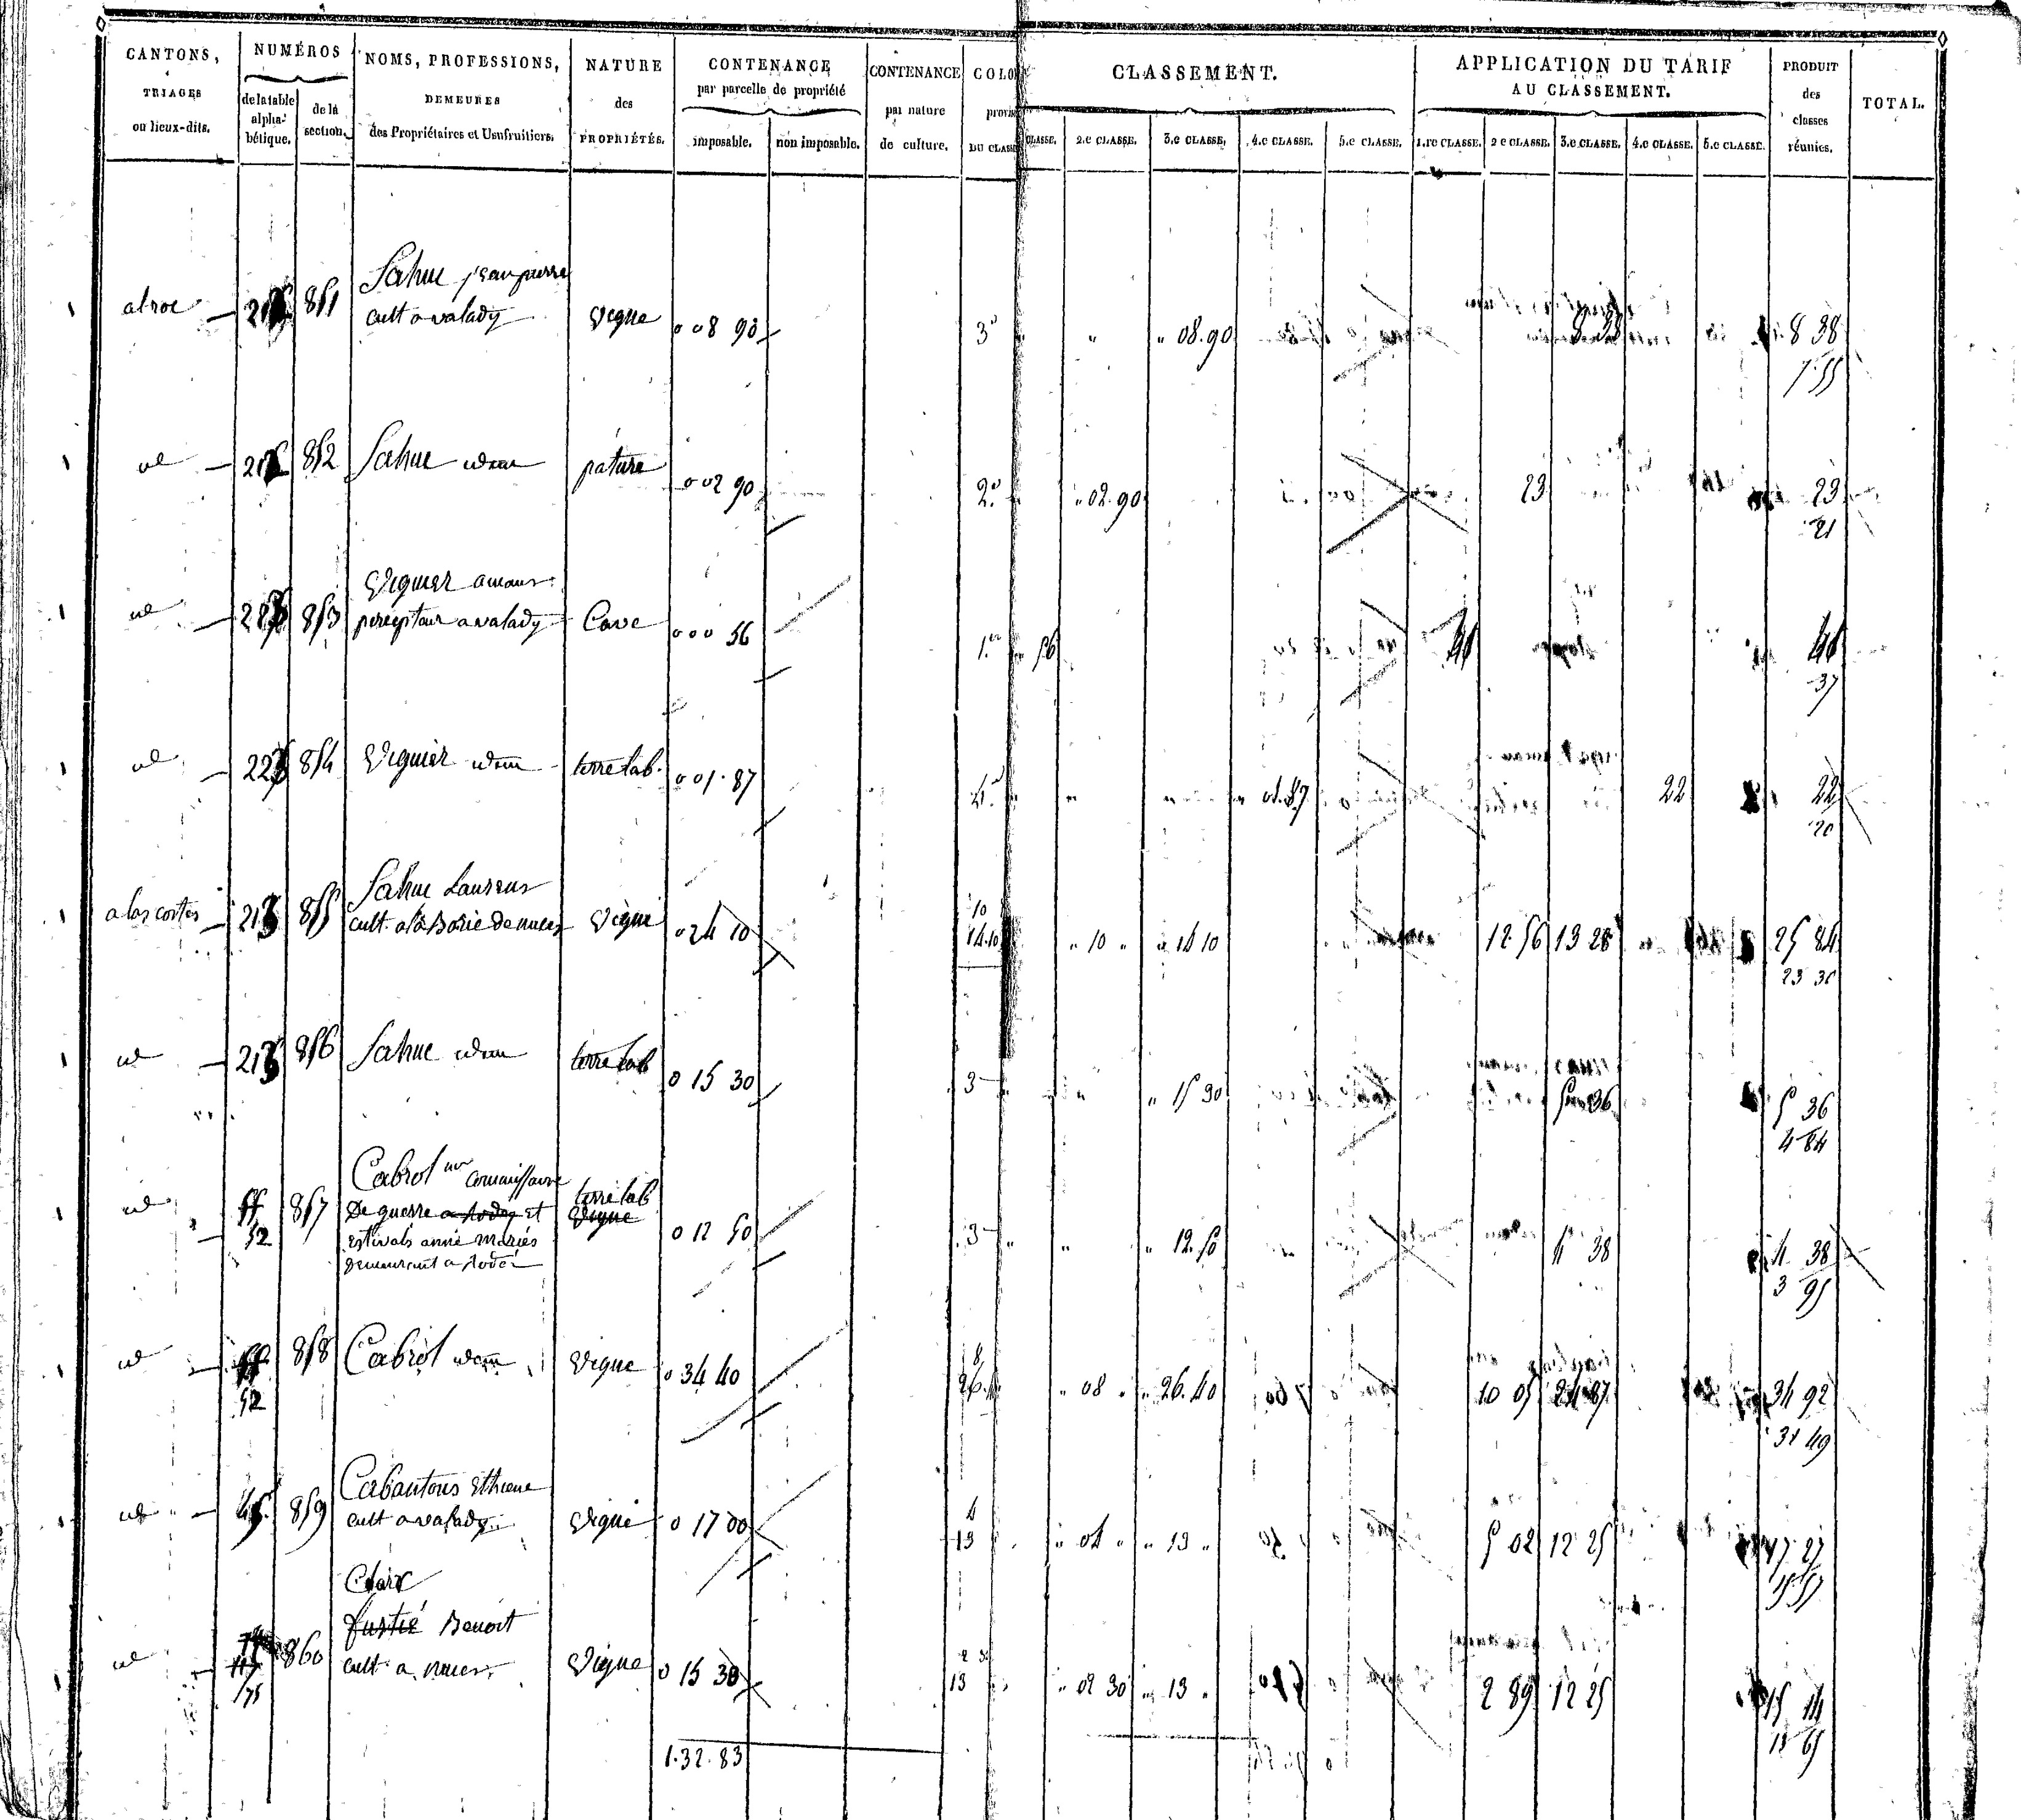 CANTONS, TRIAGES ou lieux-dits.
NUMÉROS
de la table alpha-bétique.
de la section.
NOMS, PROFESSIONS, DEMEURES des Propriétaires et Usufruitiers.
NATURE des PROPRIÉTÉS.
CONTENANCE par parcelle de propriété
imposable.
non imposable.
CONTENANCE par nature de culture.
COLO provis DU CLASSE
CLASSEMENT.
CLASSE. 2.e CLASSE. 3.e CLASSE. 4.e CLASSE. 5.e CLASSE.
APPLICATION DU TARIF AU CLASSEMENT.
1.re CLASSE. 2e CLASSE. 3.e CLASSE. 4.e CLASSE. 5.e CLASSE.
PRODUIT des classes réunies.
TOTAL.
Sahuc jean pierre
al roc 851 cult a valady vigne 0 08 90 3e 08.90 8 38 8 38
7 55
id 852 Sahuc idem pâture 0 02 90 2e 02.90 23 23
21
Viguier amans
id 853 percepteur a valady Cave 0 00 56 1re 56 41 41
37
id 854 Viguier idem terre lab. 0 01.87 4e 01.87 22 22
20
Sahuc Laurens
a las costes 213 855 cult. a la Borie de nuces vigne 0 24 10 10 14.10 10 14 10 12.56 13 28 25 84
23 30
id 213 856 Sahuc idem terre lab 0 15 30 3 15 30 5 36 5 36
4 84
Cabrol commissaire
id 52 857 de guerre a rodez et terre lab vigne 0 12 50 3 12.50 4 38 4 38
estivals anné mariés
demeurant a rodez
3 95
id 52 858 Cabrol idem vigne 0 34 40 8 26.40 08 26.40 10 05 24 87 34 92
31 49
Cabantous Ethiene
id 45 859 cult a valady vigne 0 17 00 4 13 04 13 5 02 12 25 17 27
15 57
Clair
Fustié Benoit
id 75 860 cult a nuces vigne 0 15 30 2 3 13 02 30 13 2 89 12 25 15 14
13 65
1.32.83